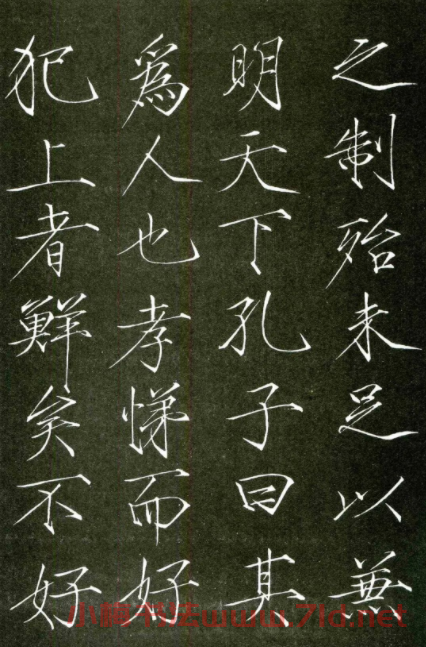 之制殆未足以兼
明天下孔子曰其
爲人也孝悌而好
犯上者鮮矣不好
小鹏书法www.7id.net